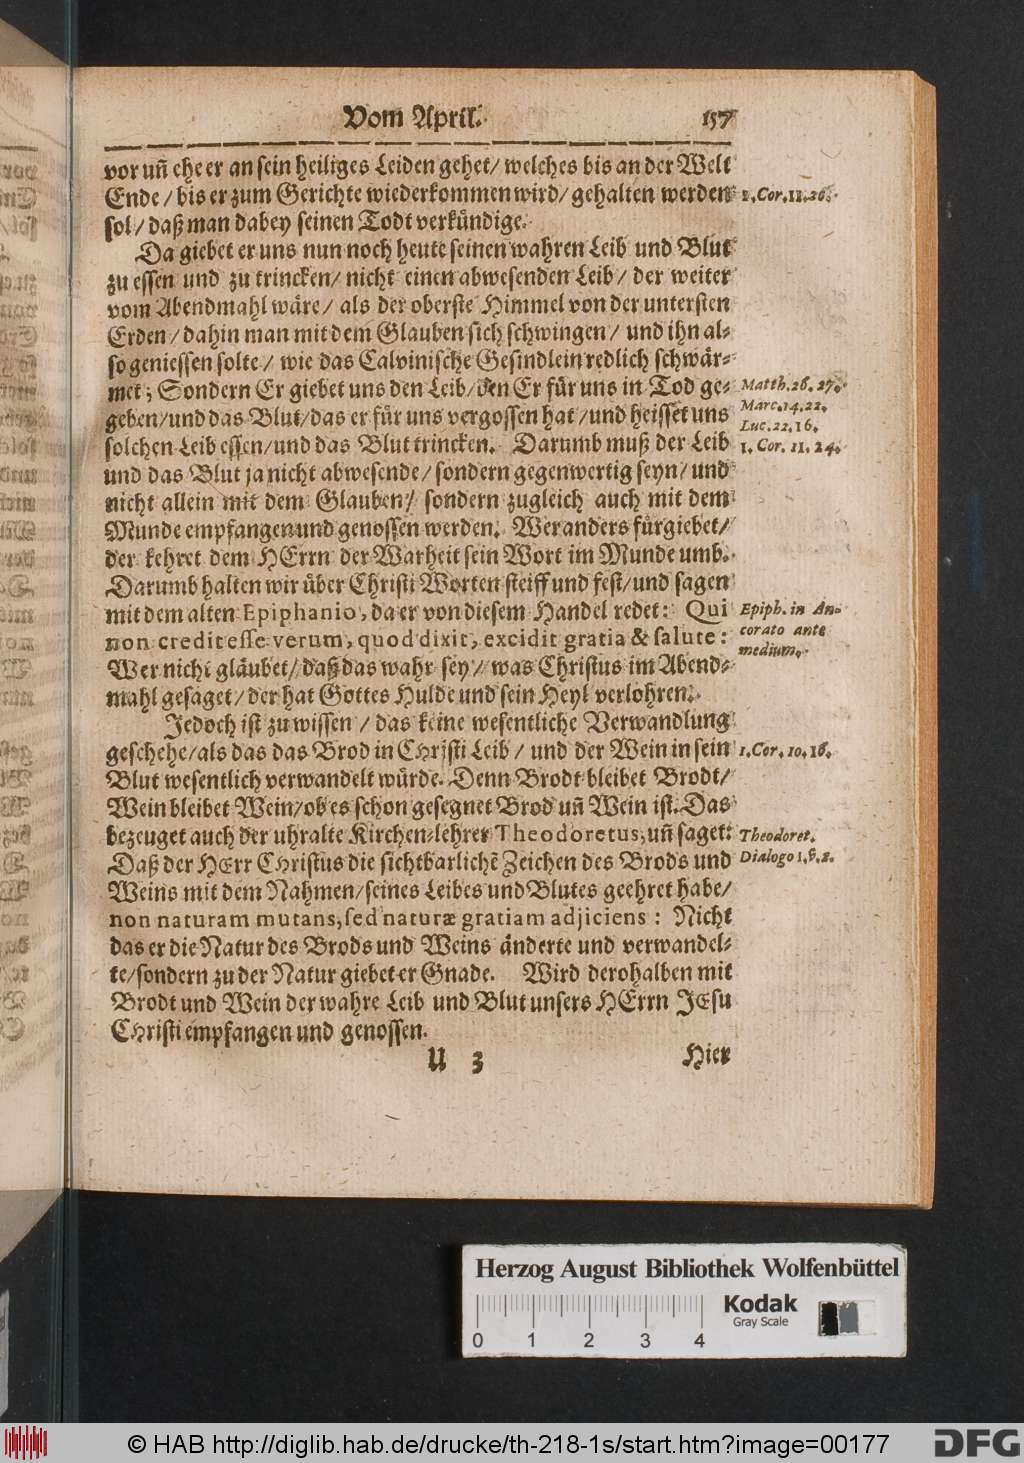 Vom April. 157
vor uñ ehe er an sein heiliges Leiden gehet/ welches bis an der Welt
Ende/ bis er zum Gerichte wiederkommen wird/ gehalten werden
1. Cor. 11. 26.
sol/ daß man dabey seinen Todt verkündige.
Da giebet er uns nun noch heute seinen wahren Leib und Blut
zu essen und zu trincken/ nicht einen abwesenden Leib/ der weiter
vom Abendmahl wäre/ als der oberste Himmel von der untersten
Erden/ dahin man mit dem Glauben sich schwingen/ und ihn al-
so geniessen solte/ wie das Calvinische Gesindlein redlich schwär-
met; Sondern Er giebet uns den Leib/ den Er für uns in Tod ge-
Matth. 26. 27.
geben/ und das Blut/ das er für uns vergossen hat/ und heisset uns
Marc. 14. 22.
Luc. 22. 16.
solchen Leib essen/ und das Blut trincken. Darumb muß der Leib
1. Cor. 11. 24.
und das Blut ja nicht abwesende/ sondern gegenwertig seyn/ und
nicht allein mit dem Glauben/ sondern zugleich auch mit dem
Munde empfangen und genossen werden. Wer anders fürgiebet/
der kehret dem HErrn der Warheit sein Wort im Munde umb.
Darumb halten wir über Christi Worten steiff und fest/ und sagen
mit dem alten Epiphanio, da er von diesem Handel redet: Qui
Epiph. in An-
non credit esse verum, quod dixit, excidit gratia & salute:
corato ante
medium.
Wer nicht gläubet/ daß das wahr sey/ was Christus im Abend-
mahl gesaget/ der hat Gottes Hulde und sein Heyl verlohren.
Jedoch ist zu wissen/ das keine wesentliche Verwandlung
geschehe/ als das das Brod in CHristi Leib/ und der Wein in sein
1. Cor. 10. 16.
Blut wesentlich verwandelt würde. Denn Brodt bleibet Brodt/
Wein bleibet Wein/ ob es schon gesegnet Brod uñ Wein ist. Das
bezeuget auch der uhralte Kirchen-lehrer Theodoretus, uñ saget:
Theodoret.
Daß der HErr CHristus die sichtbarlichẽ Zeichen des Brods und
Dialogo 1. & 2.
Weins mit dem Nahmen/ seines Leibes und Blutes geehret habe/
non naturam mutans, sed naturæ gratiam adjiciens: Nicht
das er die Natur des Brods und Weins änderte und verwandel-
te/ sondern zu der Natur giebet er Gnade. Wird derohalben mit
Brodt und Wein der wahre Leib und Blut unsers HErrn JEsu
CHristi empfangen und genossen.
U 3 Hier
Herzog August Bibliothek Wolfenbüttel
Kodak
Gray Scale
0 1 2 3 4
© HAB http://diglib.hab.de/drucke/th-218-1s/start.htm?image=00177
DFG